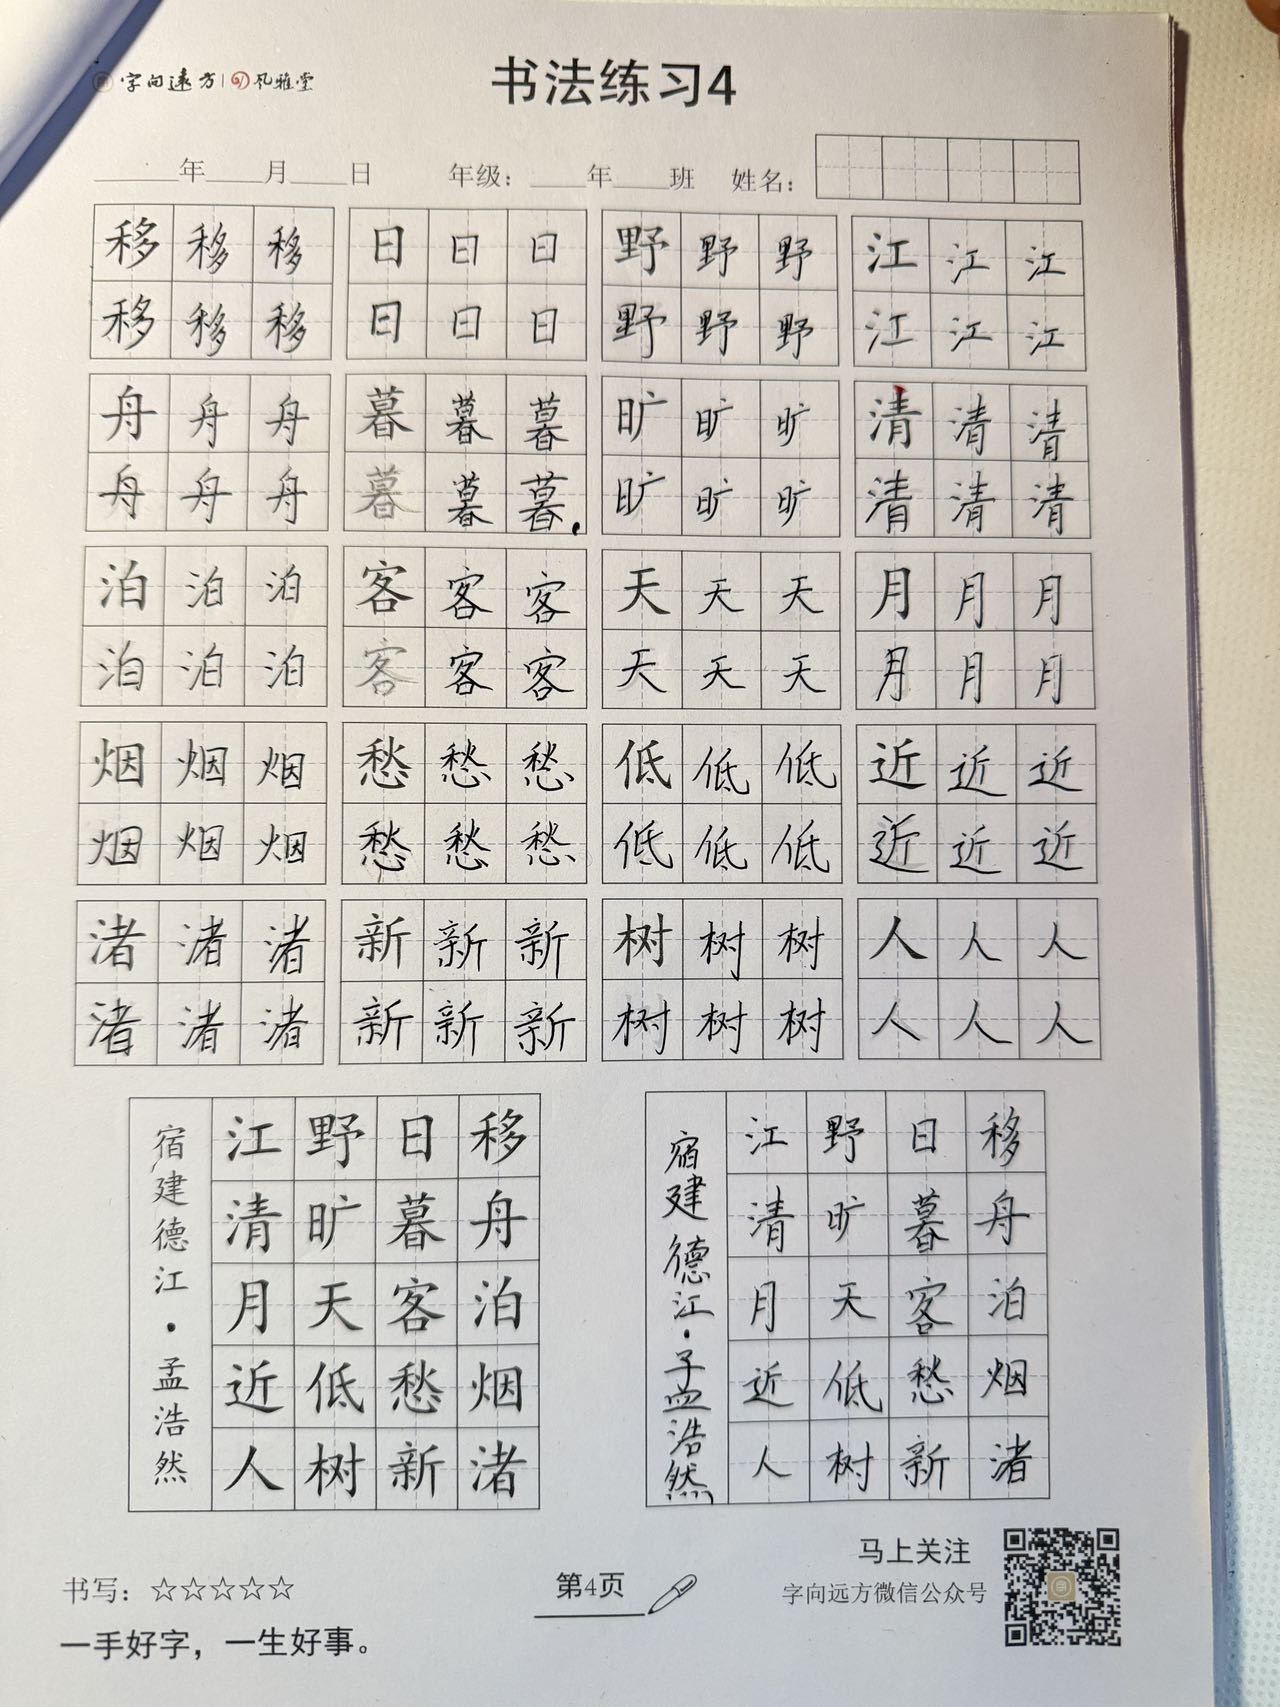 字向远方 风雅堂
书法练习4
年 月 日 年级： 年 班 姓名：
移 移 移 日 日 日 野 野 野 江 江 江
移 移 移 日 日 日 野 野 野 江 江 江
舟 舟 舟 暮 暮 暮 旷 旷 旷 清 清 清
舟 舟 舟 暮 暮 暮 旷 旷 旷 清 清 清
泊 泊 泊 客 客 客 天 天 天 月 月 月
泊 泊 泊 客 客 客 天 天 天 月 月 月
烟 烟 烟 愁 愁 愁 低 低 低 近 近 近
烟 烟 烟 愁 愁 愁 低 低 低 近 近 近
渚 渚 渚 新 新 新 树 树 树 人 人 人
渚 渚 渚 新 新 新 树 树 树 人 人 人
移舟泊烟渚
日暮客愁新
野旷天低树
江清月近人
宿建德江·孟浩然
移舟泊烟渚
日暮客愁新
野旷天低树
江清月近人
宿建德江·孟浩然
书写：☆☆☆☆☆
一手好字，一生好事。
第4页
马上关注
字向远方微信公众号